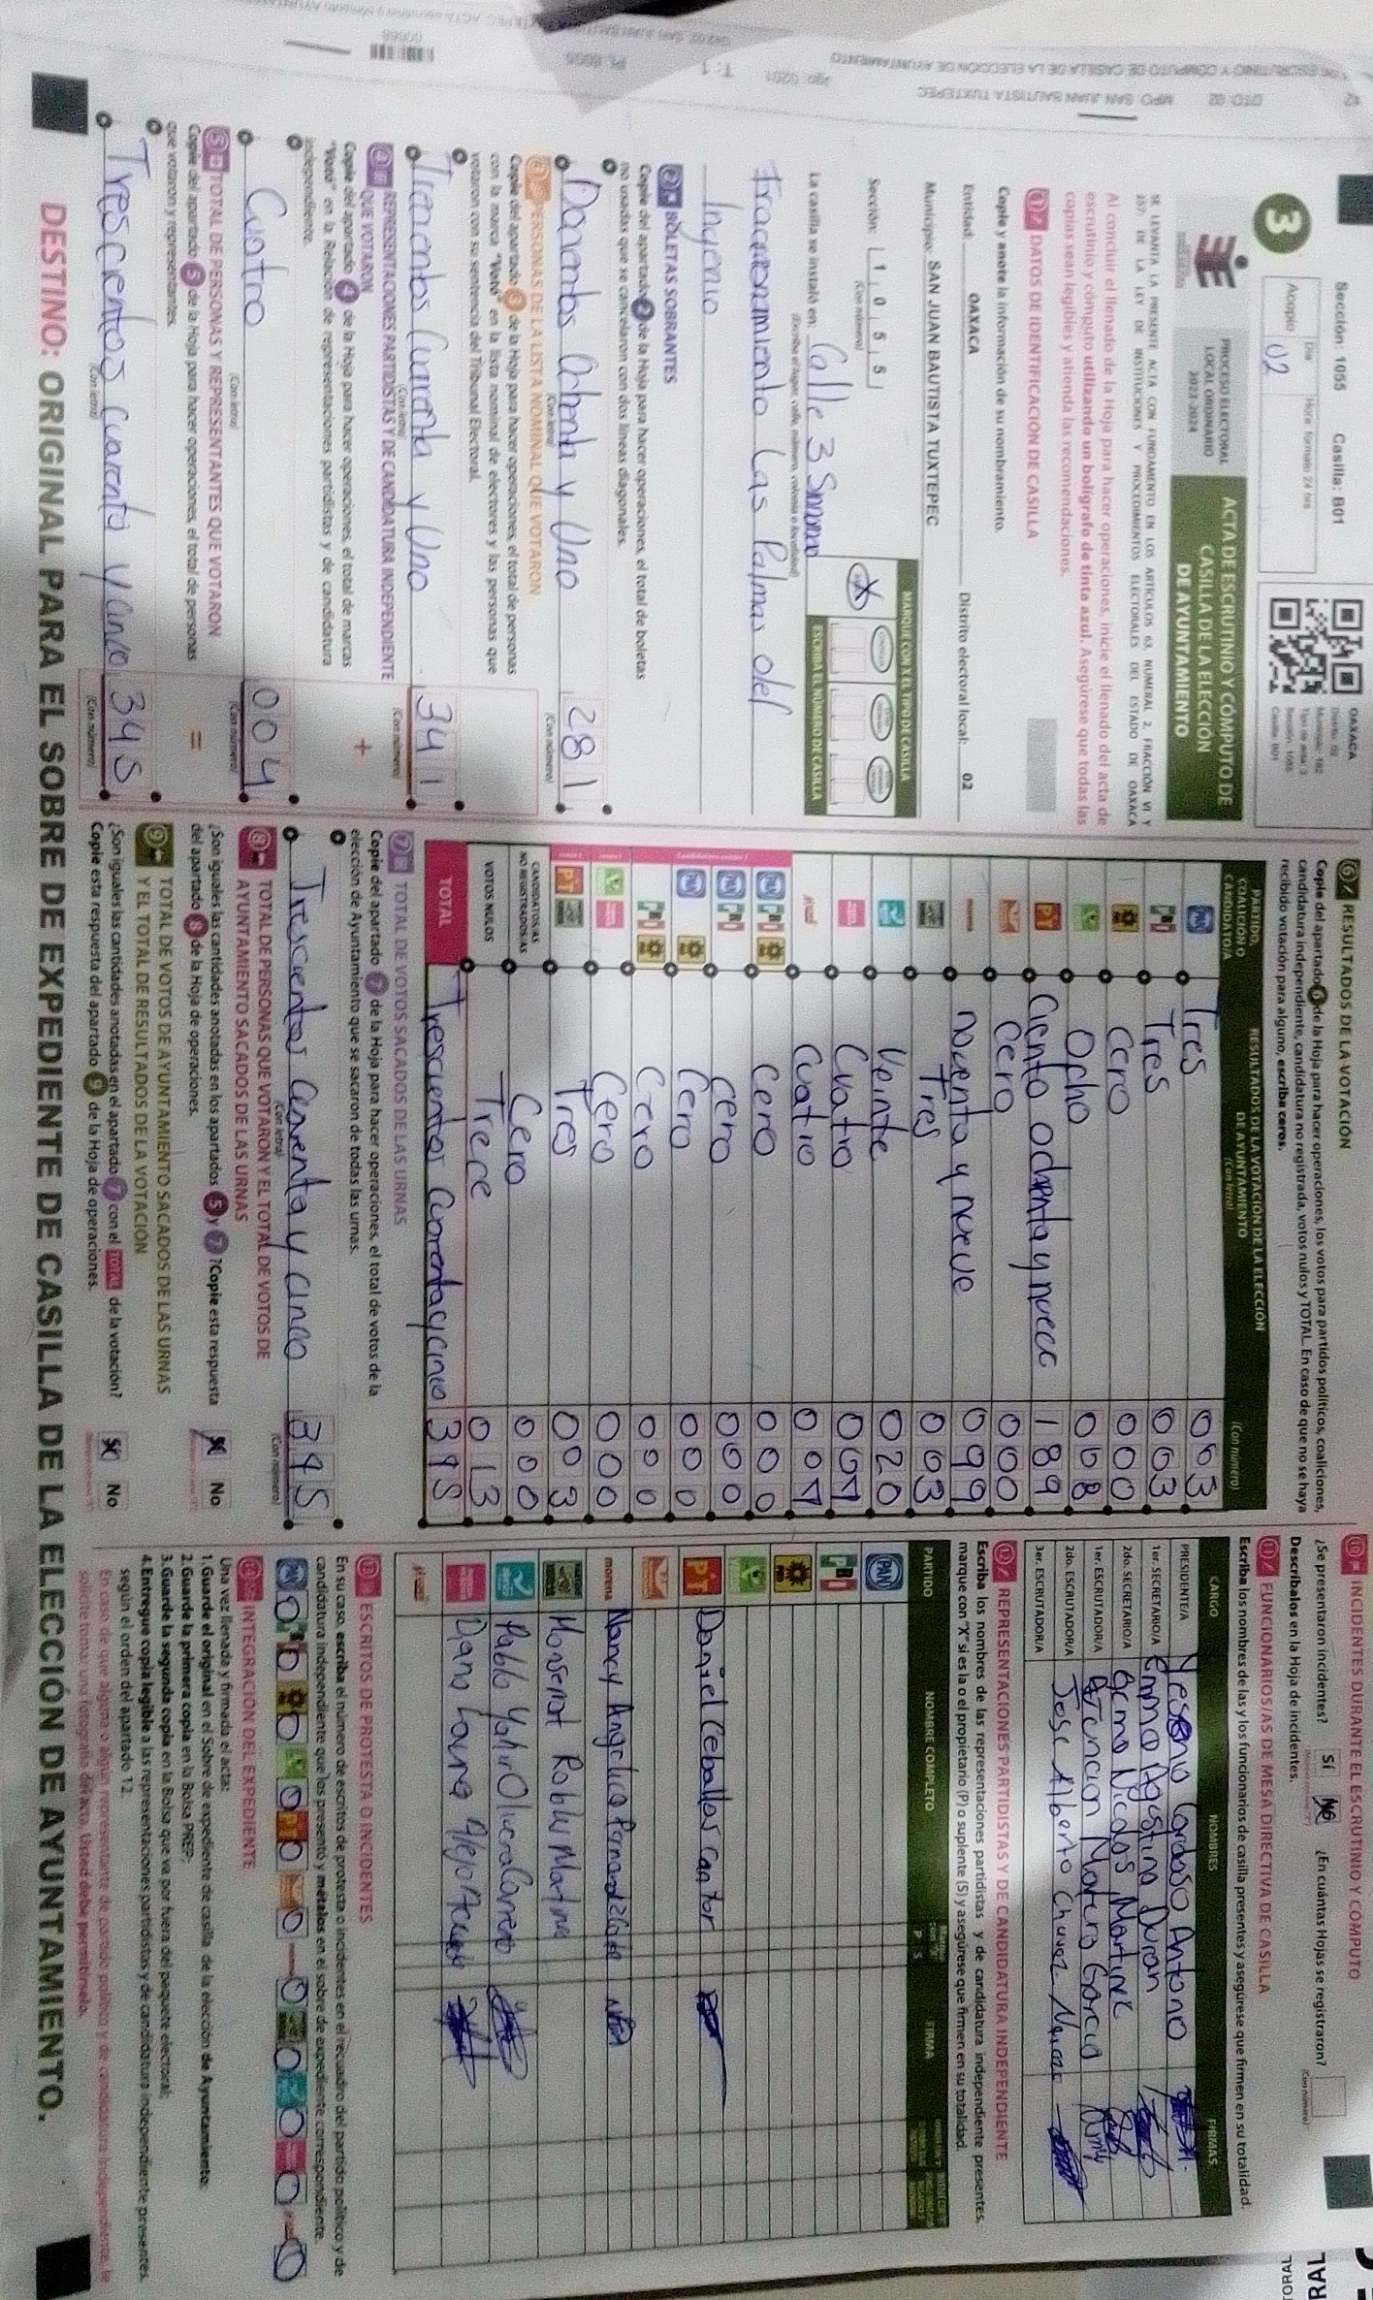 Sección: 1055 Casilla: B01
3
Acopio
Día
Hora: formato 24 hrs
02
OAXACA
PROCESO ELECTORAL
LOCAL ORDINARIO
2023-2024
ACTA DE ESCRUTINIO Y CÓMPUTO DE
CASILLA DE LA ELECCIÓN
DE AYUNTAMIENTO
SE LEVANTA LA PRESENTE ACTA CON FUNDAMENTO EN LOS ARTÍCULOS 63, NUMERAL 2, FRACCIÓN VI Y
257; DE LA LEY DE INSTITUCIONES Y PROCEDIMIENTOS ELECTORALES DEL ESTADO DE OAXACA
Al concluir el llenado de la Hoja para hacer operaciones, inicie el llenado del acta de
escrutinio y cómputo utilizando un bolígrafo de tinta azul. Asegúrese que todas las
copias sean legibles y atienda las recomendaciones.
1 DATOS DE IDENTIFICACIÓN DE CASILLA
Copie y anote la información de su nombramiento.
Entidad: OAXACA Distrito electoral local: 02
Municipio: SAN JUAN BAUTISTA TUXTEPEC
Sección: 1 0 5 5
(Con número)
MARQUE CON X EL TIPO DE CASILLA
ESCRIBA EL NÚMERO DE CASILLA
La casilla se instaló en: Calle 3 Sinnumero
(Escriba el lugar: calle, número, colonia o localidad)
Fraccionamiento Las Palmas del
Ingenio
2 BOLETAS SOBRANTES
Copie del apartado 2 de la Hoja para hacer operaciones, el total de boletas
no usadas que se cancelaron con dos líneas diagonales.
Docientos Ochenta y Uno 281
(Con letra) (Con número)
3 PERSONAS DE LA LISTA NOMINAL QUE VOTARON
Copie del apartado 3 de la Hoja para hacer operaciones, el total de personas
con la marca "Votó" en la lista nominal de electores y las personas que
votaron con su sentencia del Tribunal Electoral.
Trecientos Cuarenta y Uno 341
(Con letra) (Con número)
4 REPRESENTACIONES PARTIDISTAS Y DE CANDIDATURA INDEPENDIENTE
QUE VOTARON
Copie del apartado 4 de la Hoja para hacer operaciones, el total de marcas
"Votó" en la Relación de representaciones partidistas y de candidatura
independiente.
+
Cuatro 004
(Con letra) (Con número)
5 TOTAL DE PERSONAS Y REPRESENTANTES QUE VOTARON
Copie del apartado 5 de la Hoja para hacer operaciones, el total de personas
que votaron y representantes.
=
Trescientos Cuarenta y cinco 345
(Con letra) (Con número)
6 RESULTADOS DE LA VOTACIÓN
Copie del apartado 6 de la Hoja para hacer operaciones, los votos para partidos políticos, coaliciones,
candidatura independiente, candidatura no registrada, votos nulos y TOTAL. En caso de que no se haya
recibido votación para alguno, escriba ceros.
PARTIDO,
COALICIÓN O
CANDIDATO/A
RESULTADOS DE LA VOTACIÓN DE LA ELECCIÓN
DE AYUNTAMIENTO
(Con letra)
(Con número)
PAN Tres 003
PRI Tres 003
PRD Cero 000
Ocho 008
PT Ciento ochenta y nueve 189
Cero 000
morena noventa y nueve 099
Tres 003
Veinte 020
Cuatro 004
Cuatro 004
Cero 000
Cero 000
Cero 000
Cero 000
Cero 000
Tres 003
CANDIDATOS/AS
NO REGISTRADOS/AS
Cero 000
VOTOS NULOS Trece 013
TOTAL Trescientos Cuarenta y cinco 345
7 TOTAL DE VOTOS SACADOS DE LAS URNAS
Copie del apartado 7 de la Hoja para hacer operaciones, el total de votos de la
elección de Ayuntamiento que se sacaron de todas las urnas.
Trescientos Cuarenta y cinco 345
(Con letra) (Con número)
8 TOTAL DE PERSONAS QUE VOTARON Y EL TOTAL DE VOTOS DE
AYUNTAMIENTO SACADOS DE LAS URNAS
¿Son iguales las cantidades anotadas en los apartados 5 y 7? Copie esta respuesta
del apartado 8 de la Hoja de operaciones.
Sí No
9 TOTAL DE VOTOS DE AYUNTAMIENTO SACADOS DE LAS URNAS
Y EL TOTAL DE RESULTADOS DE LA VOTACIÓN
¿Son iguales las cantidades anotadas en el apartado 7 con el TOTAL de la votación?
Copie esta respuesta del apartado 9 de la Hoja de operaciones.
Sí No
10 INCIDENTES DURANTE EL ESCRUTINIO Y CÓMPUTO
¿Se presentaron incidentes? Sí No ¿En cuántas Hojas se registraron?
Descríbalos en la Hoja de incidentes.
(Con número)
11 FUNCIONARIOS/AS DE MESA DIRECTIVA DE CASILLA
Escriba los nombres de las y los funcionarios de casilla presentes y asegúrese que firmen en su totalidad.
CARGO NOMBRES FIRMAS
PRESIDENTE/A Yesenia Cardoso Antonio
1er. SECRETARIO/A Emma Agustina Duran
2do. SECRETARIO/A
1er. ESCRUTADOR/A
2do. ESCRUTADOR/A
3er. ESCRUTADOR/A
12 REPRESENTACIONES PARTIDISTAS Y DE CANDIDATURA INDEPENDIENTE
Escriba los nombres de las representaciones partidistas y de candidatura independiente presentes,
marque con "X" si es la o el propietario (P) o suplente (S) y asegúrese que firmen en su totalidad.
PARTIDO NOMBRE COMPLETO P S FIRMA
PAN
PRI
PRD
PT Daniel Ceballos Cantor
morena Nancy Angelica
Monserrat Robles Martinez
Pablo Yahir Olivera Carrera
Diana Laura
13 ESCRITOS DE PROTESTA O INCIDENTES
En su caso, escriba el número de escritos de protesta o incidentes en el recuadro del partido político y de
candidatura independiente que los presentó y métalos en el sobre de expediente correspondiente.
14 INTEGRACIÓN DEL EXPEDIENTE
Una vez llenada y firmada el acta:
1.Guarde el original en el Sobre de expediente de casilla de la elección de Ayuntamiento;
2.Guarde la primera copia en la Bolsa PREP;
3.Guarde la segunda copia en la Bolsa que va por fuera del paquete electoral;
4.Entregue copia legible a las representaciones partidistas y de candidatura independiente presentes,
según el orden del apartado 12.
En caso de que alguna o algún representante de partido político y de candidatura independiente, le
solicite tomar una fotografía del acta, Usted debe permitírselo.
DESTINO: ORIGINAL PARA EL SOBRE DE EXPEDIENTE DE CASILLA DE LA ELECCIÓN DE AYUNTAMIENTO.